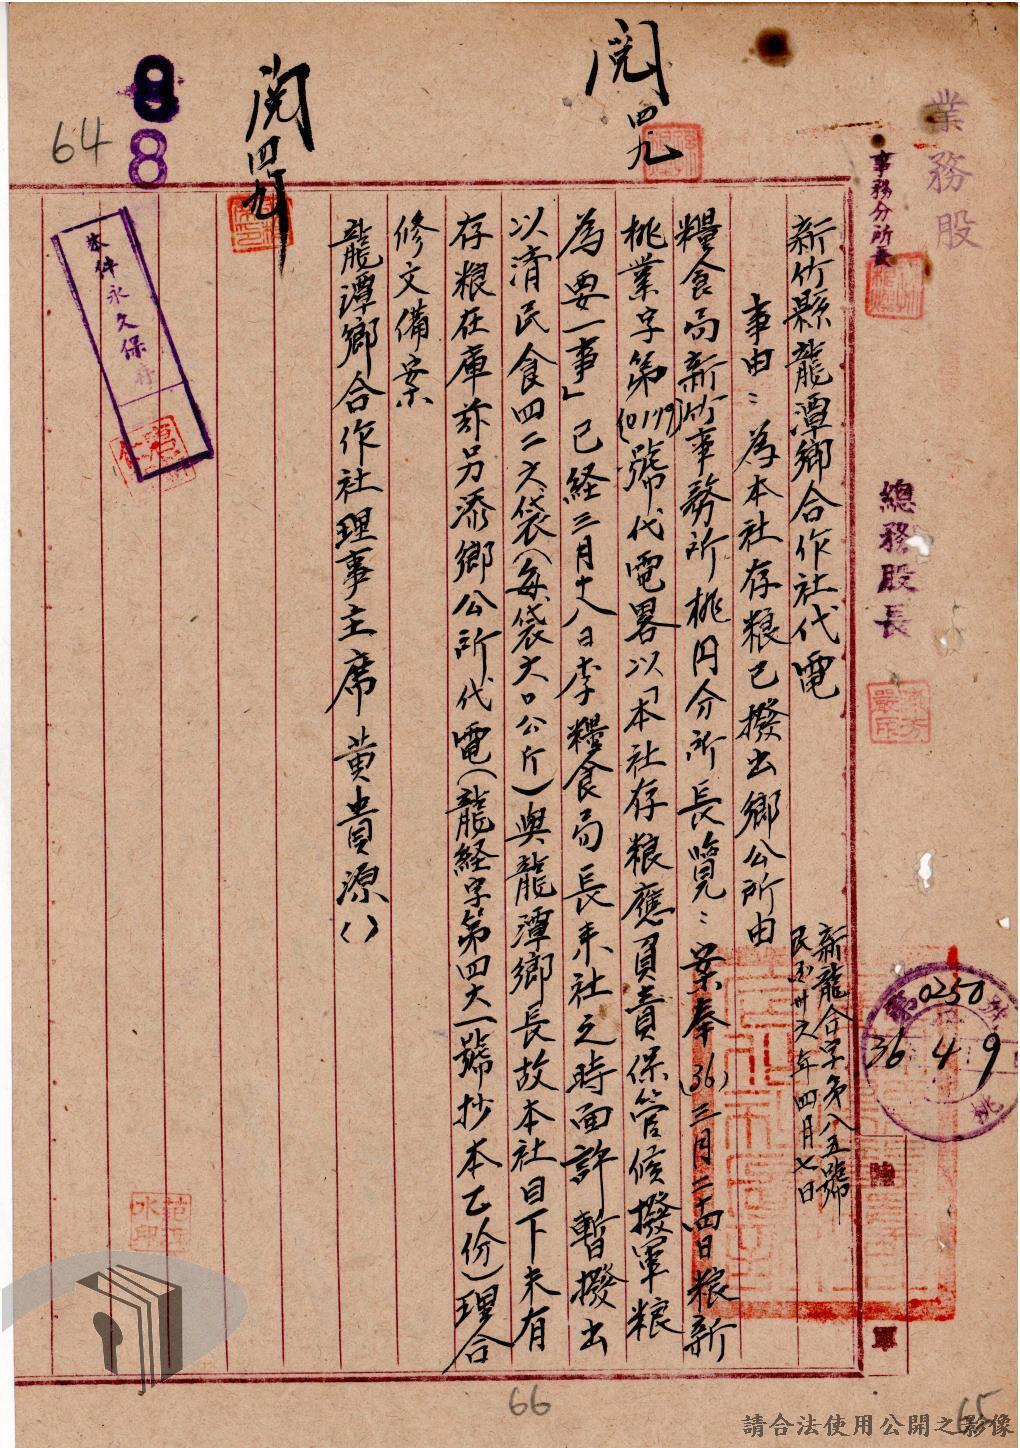 業務股
事務分所長
總務股長
第0250號
36 4 9
桃
新竹縣龍潭鄉合作社代電
新龍合字第八五號
民国卅六年四月七日
事由：為本社存粮已撥出鄉公所由
糧食局新竹事務所桃円分所長覽：案奉(36)三月二十四日粮新
桃業字第(0179)號代電畧以「本社存粮應負責保管候撥軍粮
為要一事」已経三月十八日李糧食局長来社之時面許暫撥出
以清民食四二六袋(每袋六〇公斤)與龍潭鄉長故本社目下未有
存粮在庫茲另添鄉公所代電(龍経字第四六一號抄本乙份)理合
修文備案
龍潭鄉合作社理事主席黄貴源()
閱 四九
閱 四九
本件永久保存
8
8
64
66
65
請合法使用公開之影像